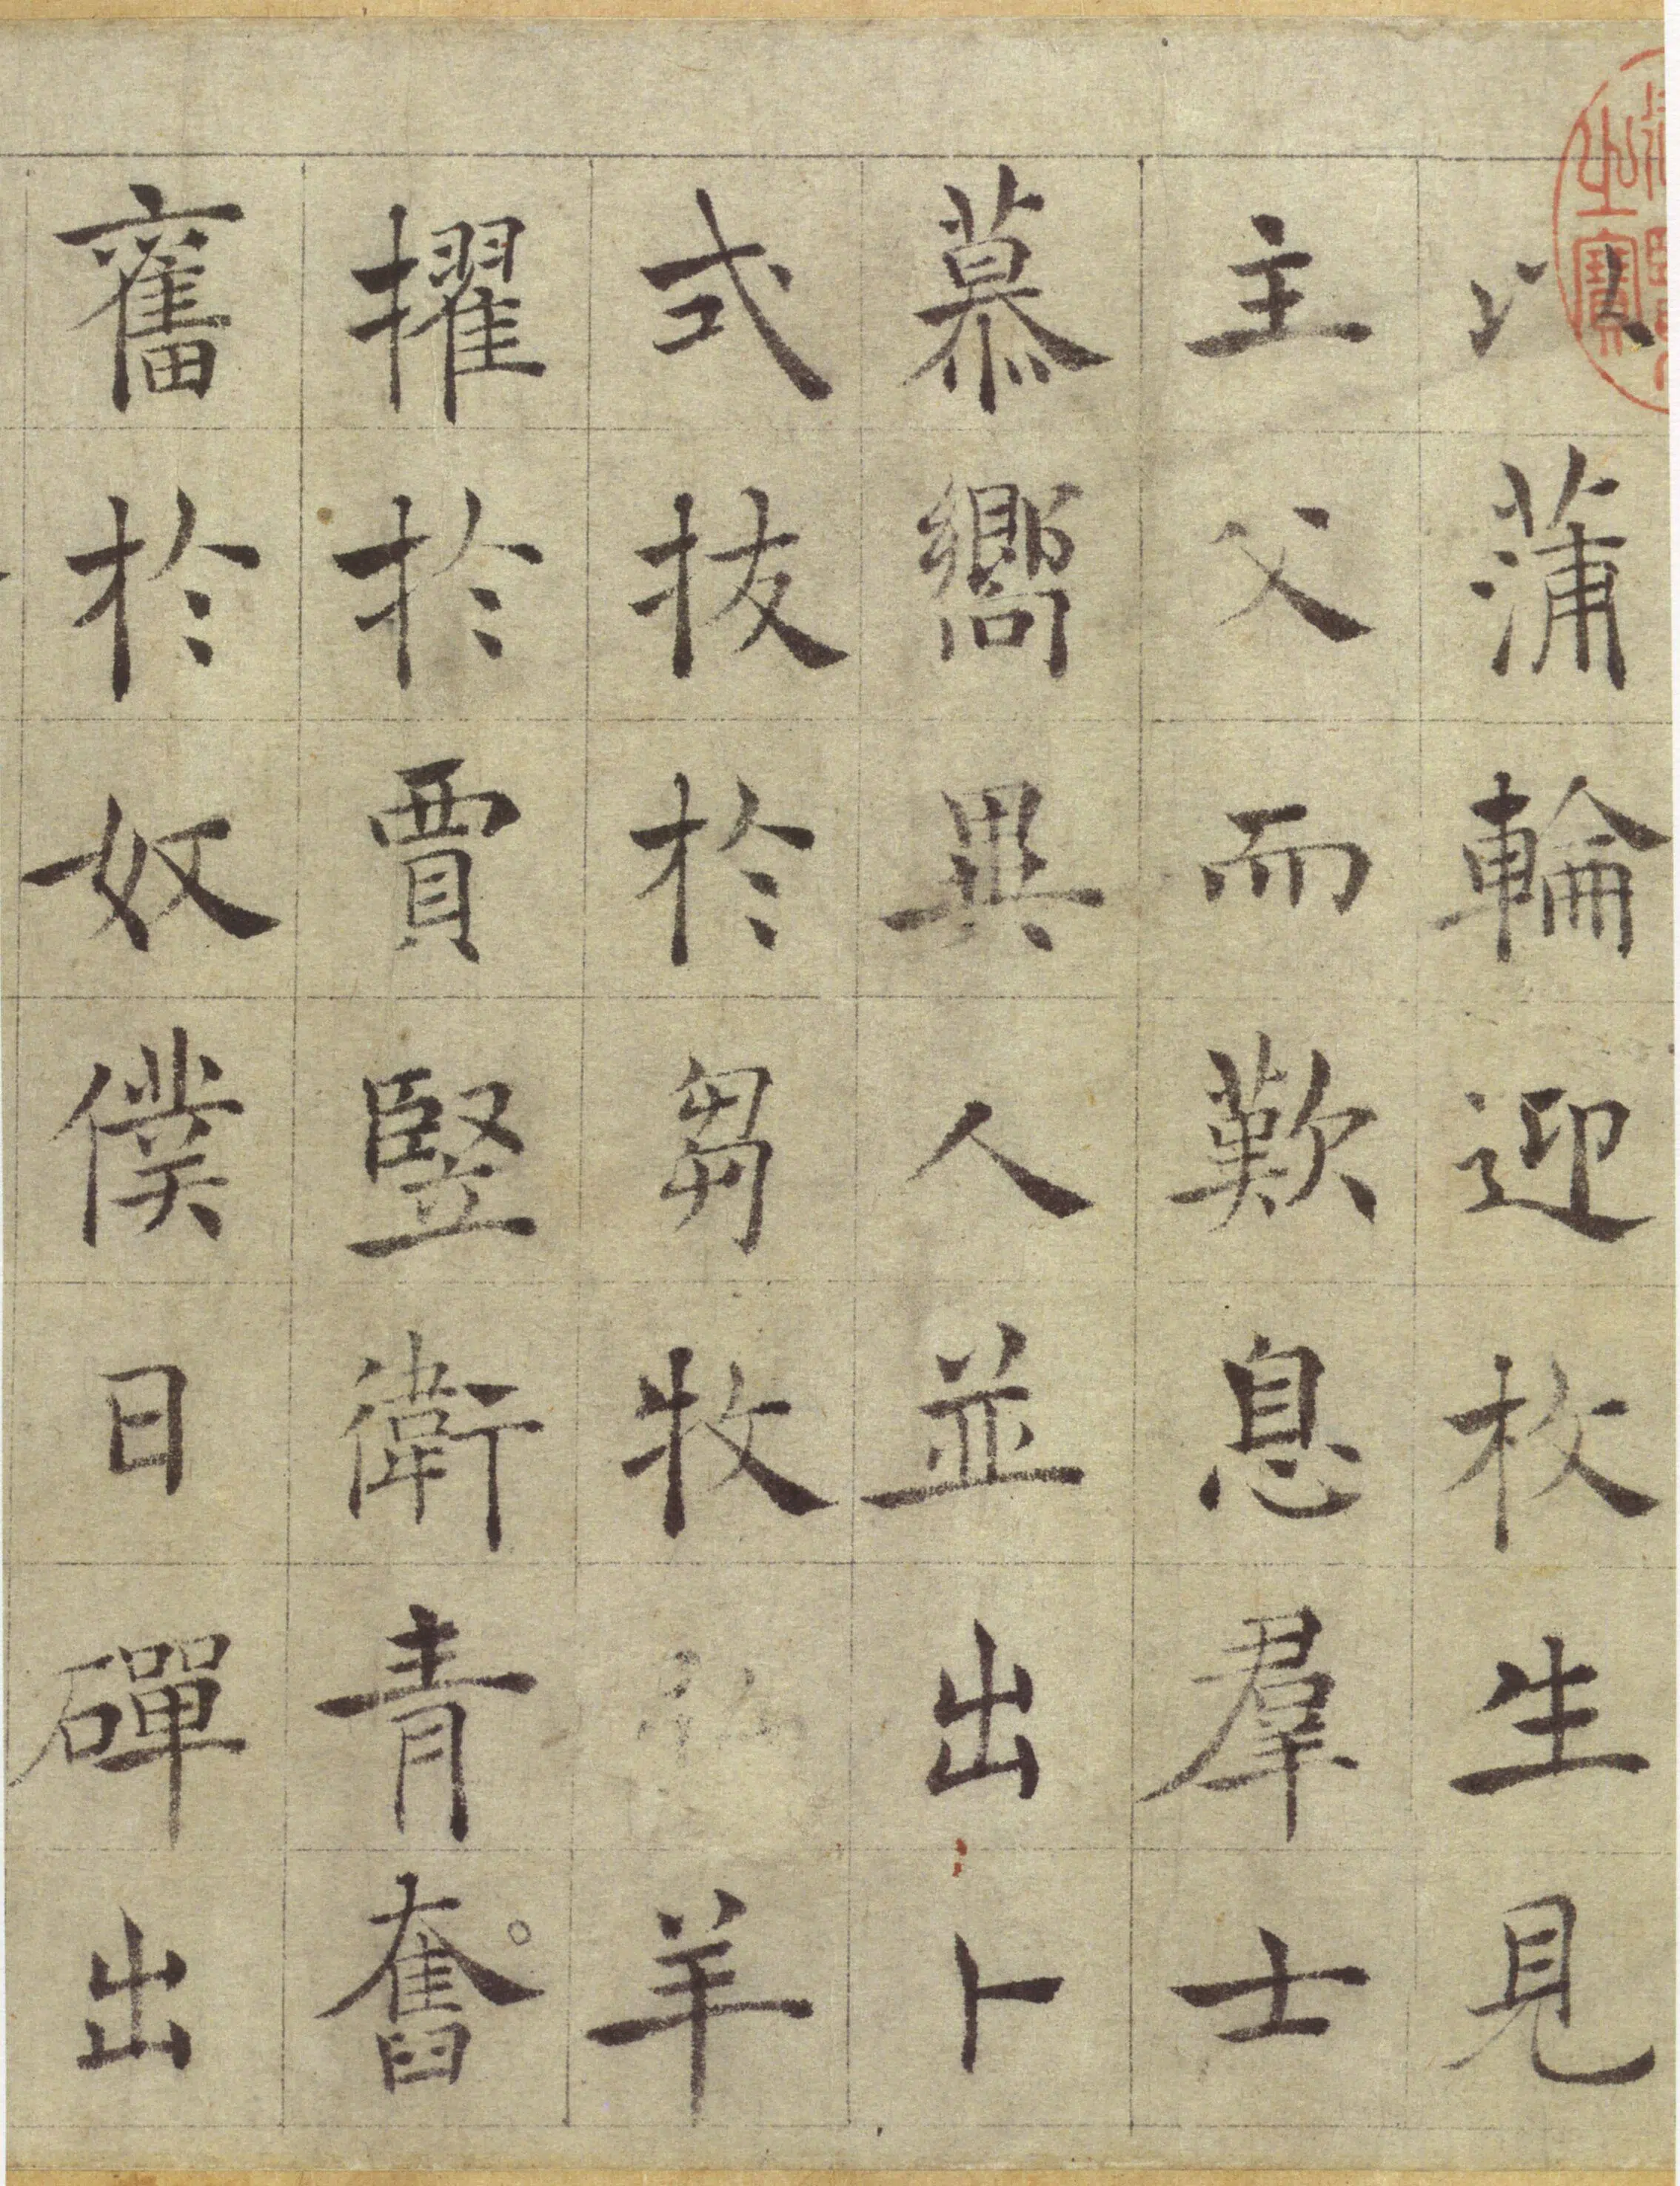 以蒲輪迎枚生見
主父而歎息羣士
慕嚮異人並出卜
式拔於芻牧弘羊
擢於賈竪衛青奮
舊於奴僕日磾出
之寶